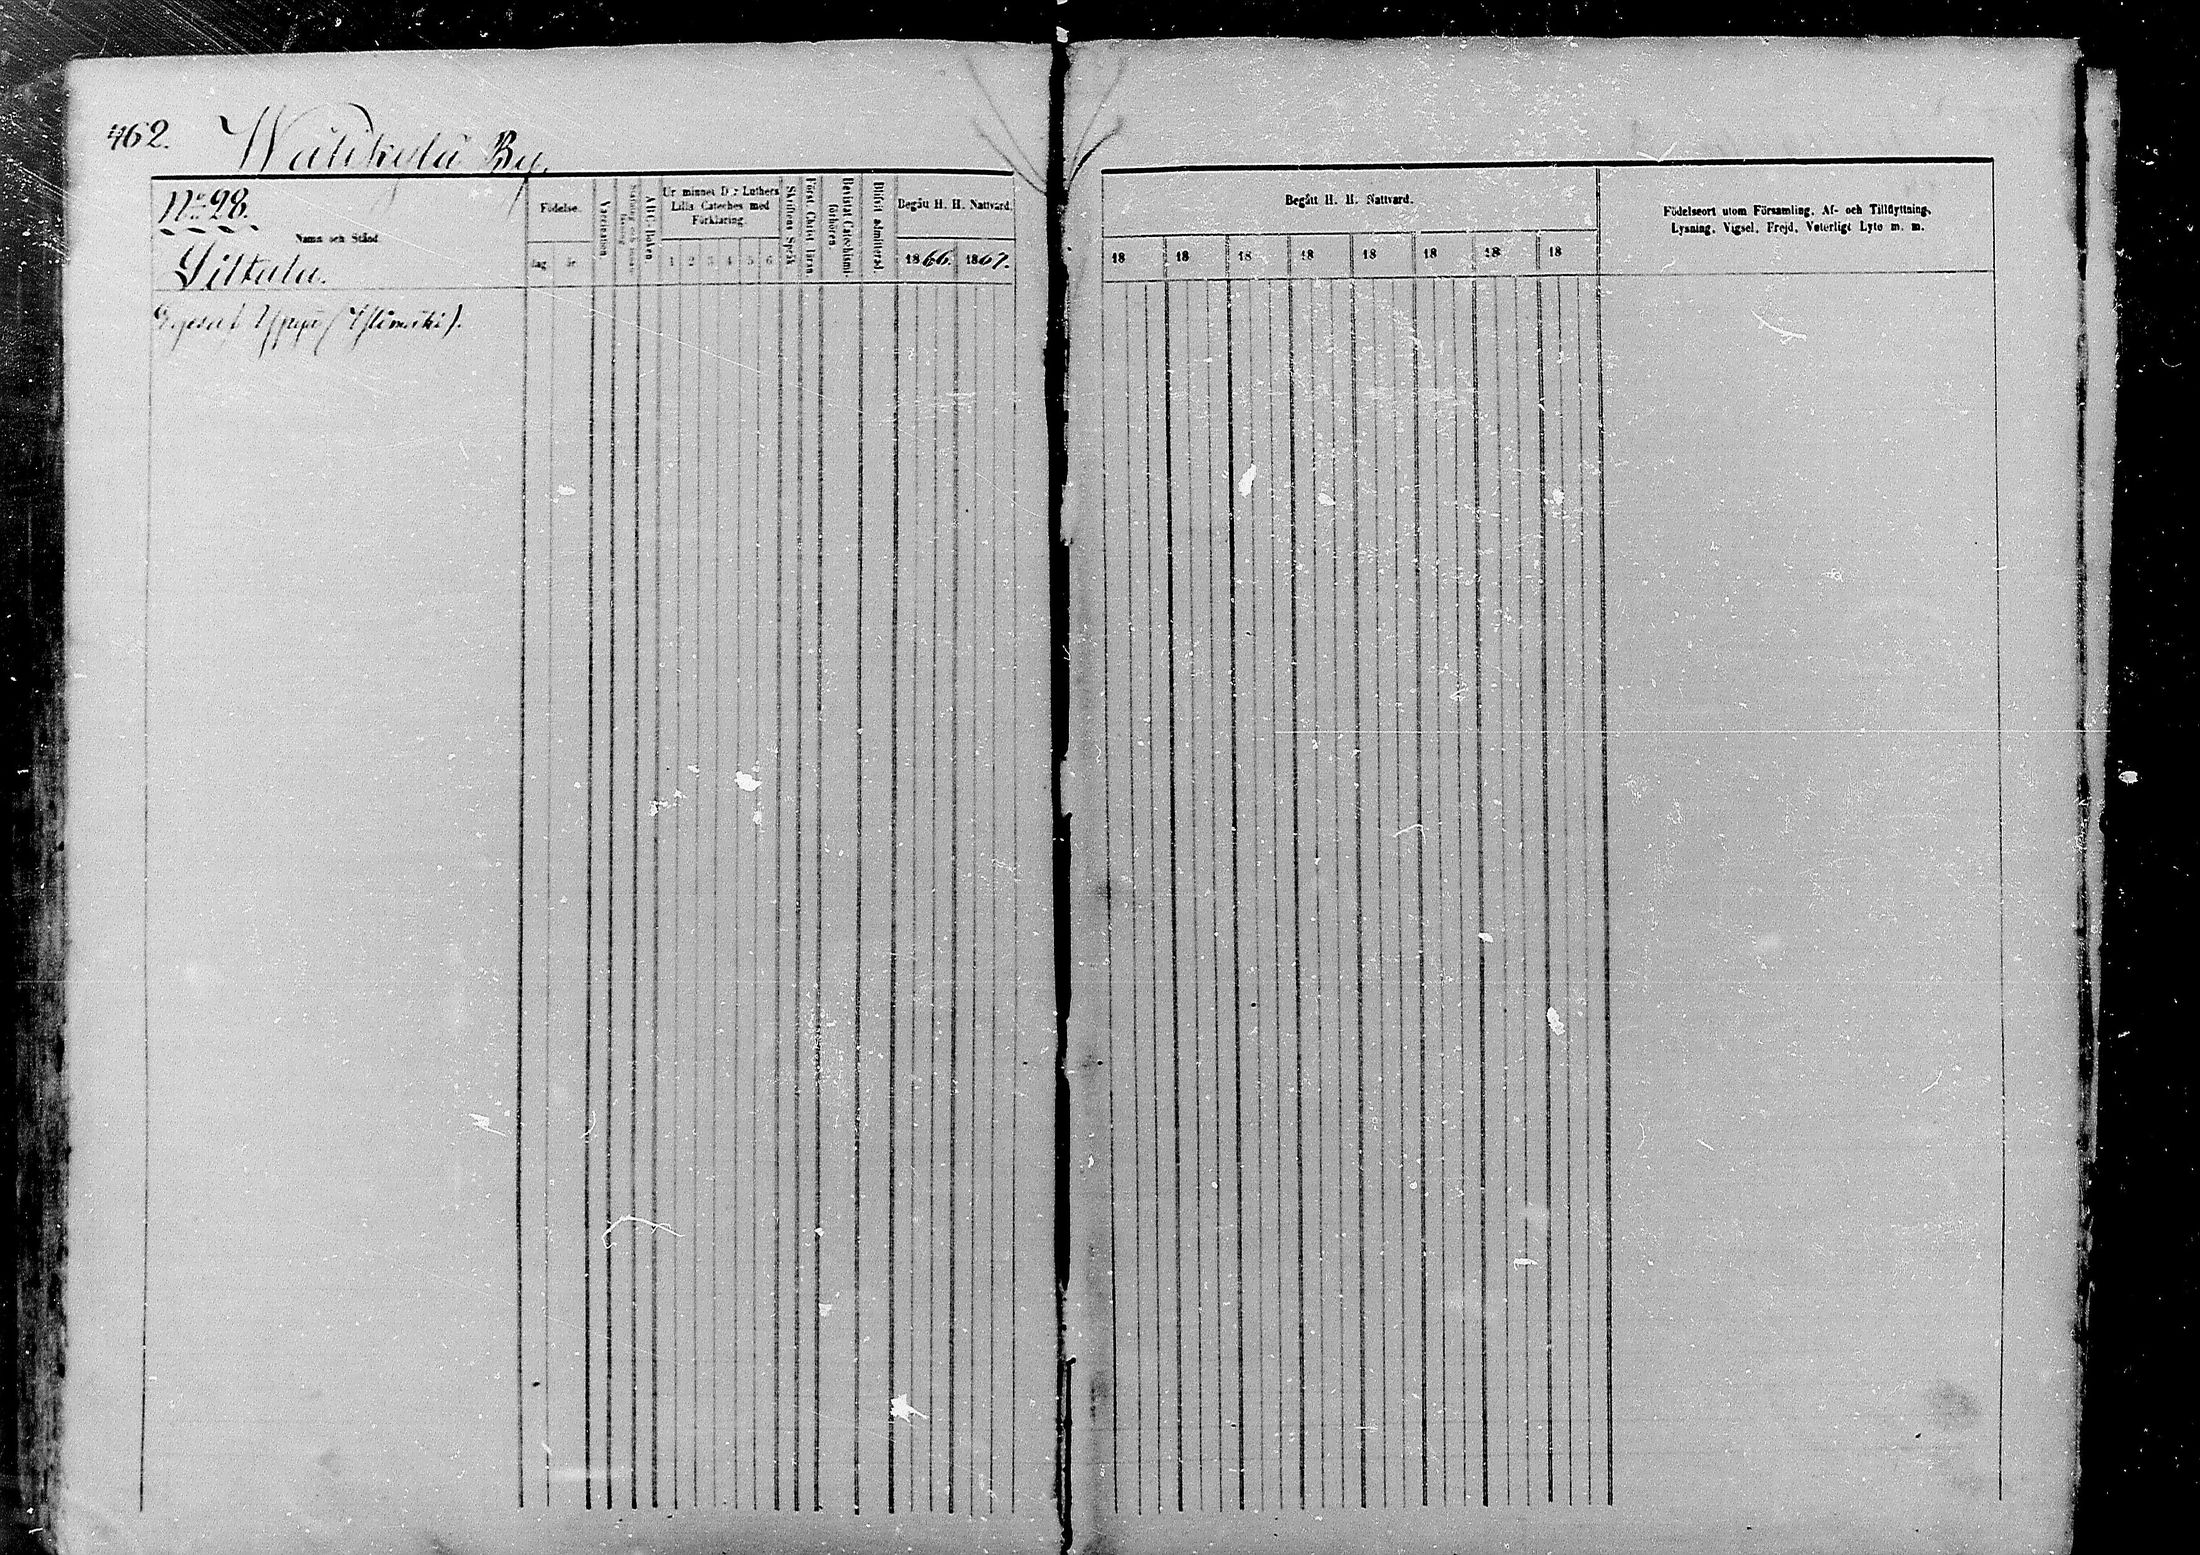 462. Wälikylä By.
No 28.
Namn och Stånd
Siltala.
Födelse.
dag år
Vaccination.
A B C Boken.
Ur minnet D:r Luthers
Lilla Cateches med
Förklaring.
1 2 3 4 5 6
Skriftens Språk
Först. Christ. läran
Bevistat Catechismi
förhören.
Blifvit admitterad.
Begått H. H. Nattvard.
1866. 1867.
Begått H. H. Nattvard.
18 18 18 18 18 18 18 18
Födelseort utom Församling, Af- och Tillflyttning,
Lysning, Vigsel, Frejd, Vaterligt Lyte m. m.
(Ylimäki).